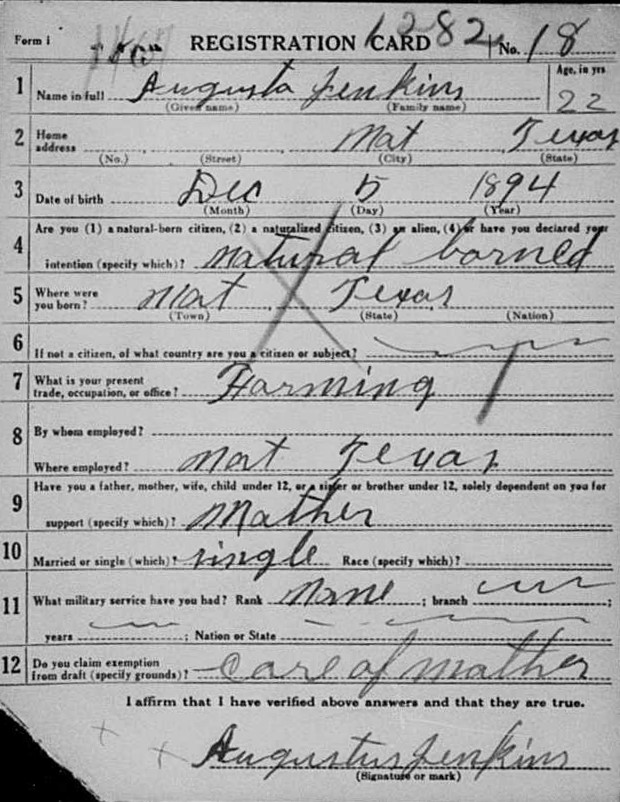 Form 1 REGISTRATION CARD 1282 No. 18
1 Name in full Augusta Jenkins Age, in yrs 22
(Given name) (Family name)
2 Home address Mat Texas
(No.) (Street) (City) (State)
3 Date of birth Dec 5 1894
(Month) (Day) (Year)
4 Are you (1) a natural-born citizen, (2) a naturalized citizen, (3) an alien, (4) or have you declared your
intention (specify which)? natural borned
5 Where were you born? Mat Texas
(Town) (State) (Nation)
6 If not a citizen, of what country are you a citizen or subject?
7 What is your present trade, occupation, or office? Farming
8 By whom employed?
Where employed? Mat Texas
9 Have you a father, mother, wife, child under 12, or a sister or brother under 12, solely dependent on you for
support (specify which)? Mather
10 Married or single (which)? single Race (specify which)?
11 What military service have you had? Rank None ; branch ;
years ; Nation or State
12 Do you claim exemption from draft (specify grounds)? Care of mather
I affirm that I have verified above answers and that they are true.
Augustus Jenkins
(Signature or mark)